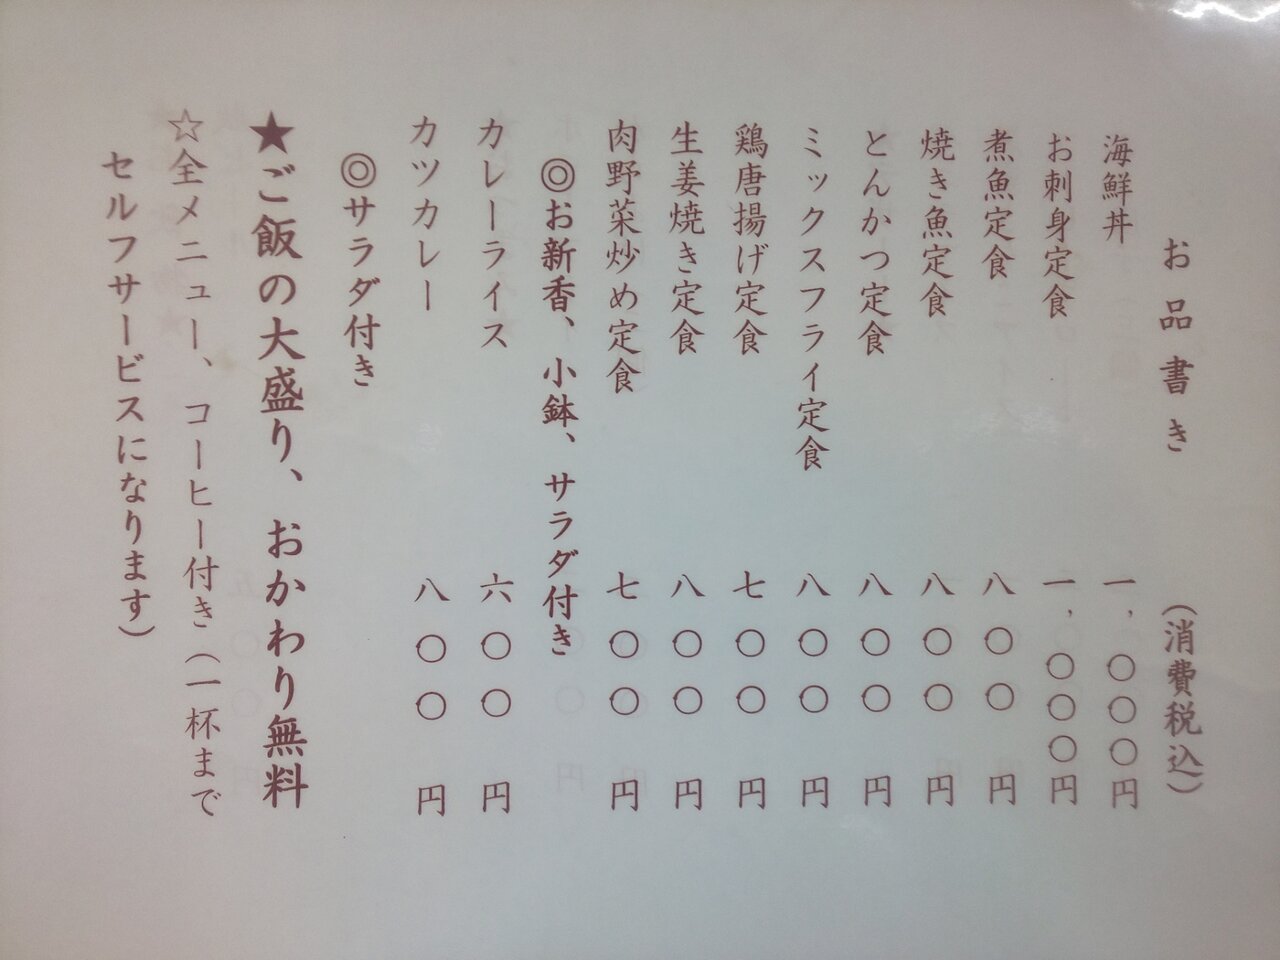 お品書き (消費税込)
海鮮丼 一,〇〇〇円
お刺身定食 一,〇〇〇円
煮魚定食 八〇〇円
焼き魚定食 八〇〇円
とんかつ定食 八〇〇円
ミックスフライ定食 八〇〇円
鶏唐揚げ定食 七〇〇円
生姜焼き定食 八〇〇円
肉野菜炒め定食 七〇〇円
◎お新香、小鉢、サラダ付き
カレーライス 六〇〇円
カツカレー 八〇〇円
◎サラダ付き
★ご飯の大盛り、おかわり無料
☆全メニュー、コーヒー付き(一杯まで
セルフサービスになります)